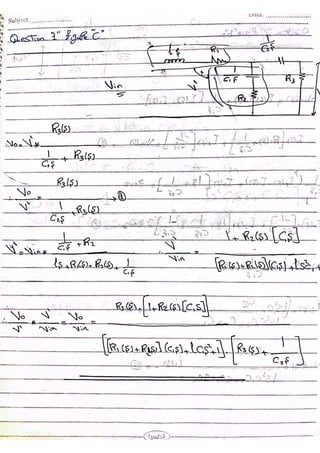 Subject
Date
Question 3" figure "C"
Lf R1 1/C2f
Vin V* 1/C1f R2 R3
R3(s)
Vo = V* *
1/C2f + R3(s)
∴ Vo/V* = R3(s) / (1/C2s + R3(s)) → ①
V* = Vin * (1/C1f + R2) / (Ls + R1(s) + R2(s) + 1/C1f) ∴ V*/Vin = 1 + R2(s) [C1s] / [R1(s) + R2(s)](C1s) + LS²
∴ Vo/V* * V*/Vin = Vo/Vin = R3(s) * [1 + R2(s) [C1s]] / [[R1(s) + R2(s)] (C1s) + LC1s² + 1] * [R3(s) + 1/C2s]